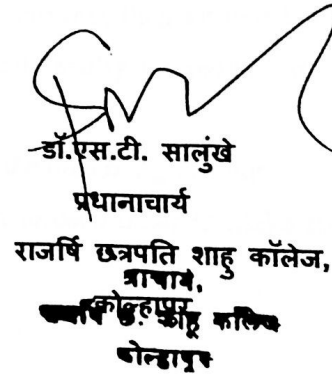 डॉ.एस.टी. सालुंखे
प्रधानाचार्य
राजर्षि छत्रपति शाहु कॉलेज,
प्राचार्य,
कोल्हापुर
शाहू कॉलेज
कोल्हापूर